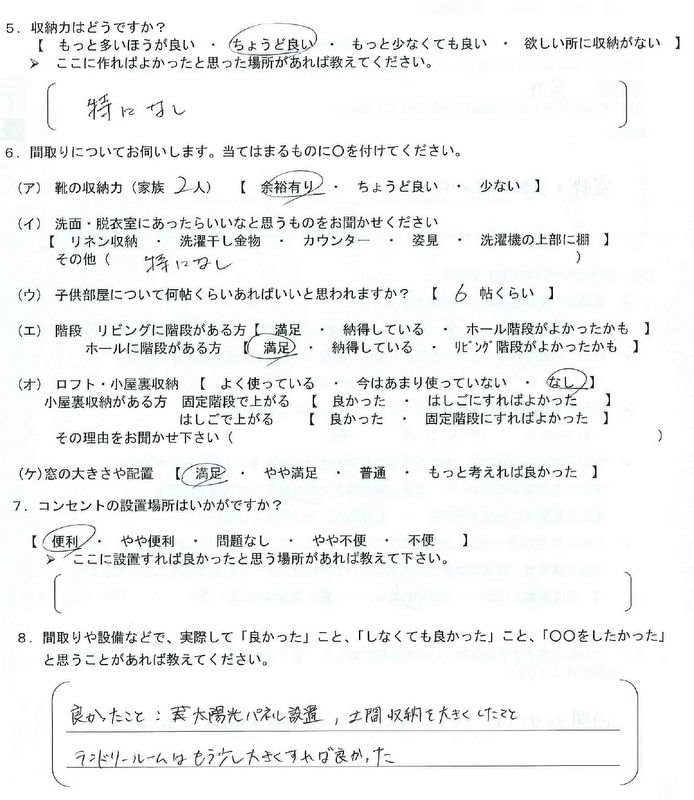 ５．収納力はどうですか？
【　もっと多いほうが良い　・　ちょうど良い　・　もっと少なくても良い　・　欲しい所に収納がない　】
➢　ここに作ればよかったと思った場所があれば教えてください。
特になし
６．間取りについてお伺いします。当てはまるものに〇を付けてください。
（ア）靴の収納力（家族　２人）　【　余裕有り　・　ちょうど良い　・　少ない　】
（イ）洗面・脱衣室にあったらいいなと思うものをお聞かせください
【　リネン収納　・　洗濯干し金物　・　カウンター　・　姿見　・　洗濯機の上部に棚　】
その他（　特になし　）
（ウ）子供部屋について何帖くらいあればいいと思われますか？　【　６　帖くらい　】
（エ）階段　リビングに階段がある方【　満足　・　納得している　・　ホール階段がよかったかも　】
ホールに階段がある方　【　満足　・　納得している　・　ﾘﾋﾞﾝｸﾞ階段がよかったかも　】
（オ）ロフト・小屋裏収納　【　よく使っている　・　今はあまり使っていない　・　なし　】
小屋裏収納がある方　固定階段で上がる　【　良かった　・　はしごにすればよかった　】
はしごで上がる　【　良かった　・　固定階段にすればよかった　】
その理由をお聞かせ下さい（　）
（ケ）窓の大きさや配置　【　満足　・　やや満足　・　普通　・　もっと考えれば良かった　】
７．コンセントの設置場所はいかがですか？
【　便利　・　やや便利　・　問題なし　・　やや不便　・　不便　】
➢　ここに設置すれば良かったと思う場所があれば教えて下さい。
８．間取りや設備などで、実際して「良かった」こと、「しなくても良かった」こと、「〇〇をしたかった」
と思うことがあれば教えてください。
良かたこと：太陽光パネル設置，土間収納を大きくしたこと
ランドリールームはもう少し大きくすれば良かった